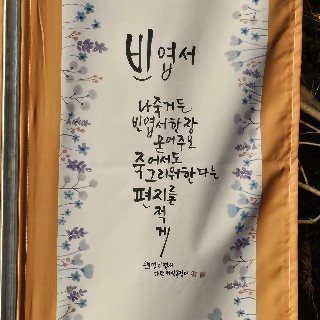 빈 엽서
나 죽거든
빈 엽서 한 장
묻어주오
죽어서도
그리워한다는
편지를
적게